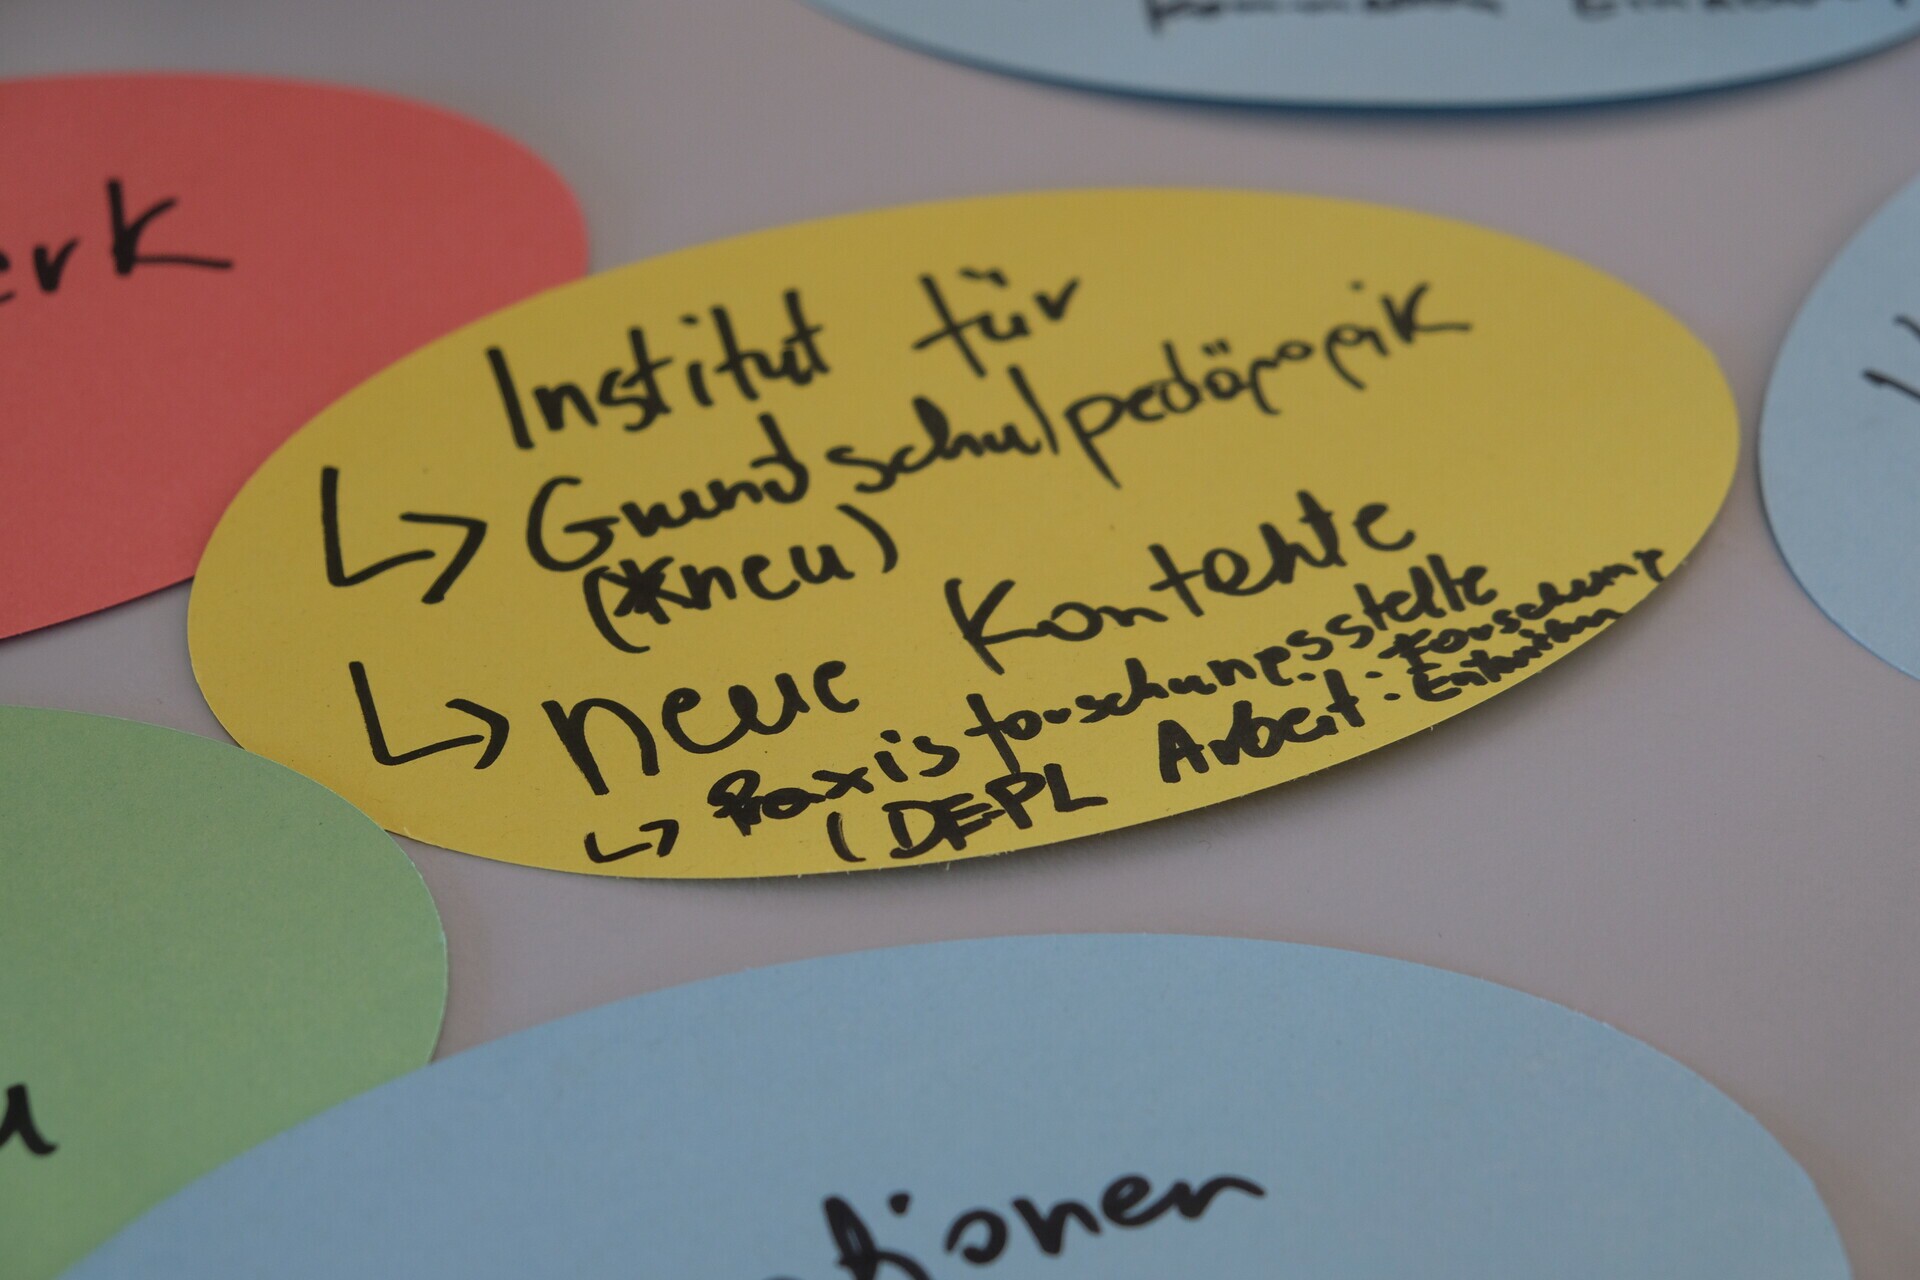 erk
Institut für
↳ Grundschulpädagogik
(*neu)
↳ neue Kontexte
↳ Praxisforschungsstelle
(DEPL Arbeit: Forschung
tionen